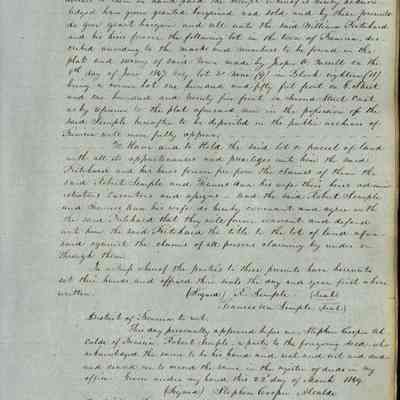 edged have given granted bargained and sold and by these presents
do give grant bargain and sell unto the said William Pritchard
and his heirs forever the following lot in the town of Francisca, des
cribed according to the marks and numbers to be found in the
plat and survey of said Town made by Jasper O'Farrell on the
9th day of June 1847 viz. lot No. nine (9) in Block eighteen (18)
being a corner lot one hundred and fifty feet front on
and one hundred and twenty five front on Second Street
as by reference to the plat aforesaid now in the possession of the
said Semple hereafter to be deposited in the public archives of
will more fully appear.
To Have and to Hold the said lot or parcel of land
with all its appurtenances and privileges unto him the said
Pritchard and his heirs forever free from the claims of them the
said Robert Semple and Frances Ann his wife their heirs admin
istrators Executors and assigns. And the said Robert Semple
and Frances Ann his wife do hereby covenant and agree with
the said Pritchard that they will forever warrant and defend
unto him the said Pritchard the title to the lot of land afore
said against the claims of all persons claiming by under or
through them.
In witness whereof the parties to these presents have hereunto
set their hands and affixed their seals the day and year first above
written. (Signed) R. Semple (Seal)
Frances Ann Semple (Seal)
District of to wit.
This day personally appeared before me Stephen Cooper Al
calde of Robert Semple a party to the foregoing deed who
acknowledged the same to be his hand and seal and act and deed
and caused me to record the same in the register of deeds in my
office. Given under my hand this 22 day of March 1849
(Signed) Stephen Cooper Alcalde